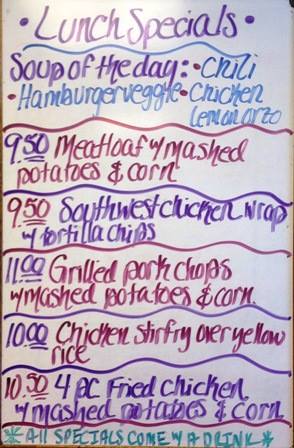 • Lunch Specials •
Soup of the day: • Chili
• Hamburger veggie • Chicken
lemon orzo
9.50 Meatloaf w/ mashed
potatoes & corn
9.50 Southwest chicken wrap
w/ tortilla chips
11.00 Grilled pork chops
w/ mashed potatoes & corn.
10.00 Chicken stirfry over yellow
rice
10.50 4 pc Fried chicken
w/ mashed potatoes & corn
* All SPECIALS COME W/ A DRINK *